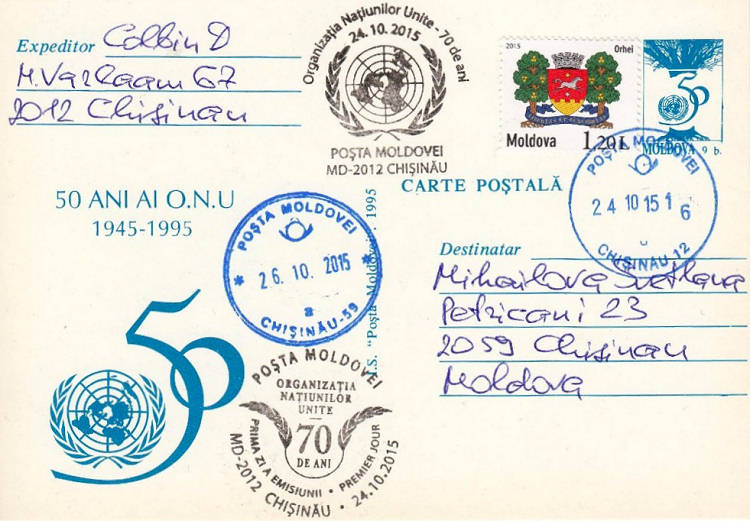 Expeditor Colbin D
M. Varlaam 67
2012 Chişinau
Organizaţia Naţiunilor Unite - 70 de ani
24.10.2015
POŞTA MOLDOVEI
MD-2012 CHIŞINĂU
2015 Orhei
Moldova 1,20 L
50
MOLDOVA 9 b.
50 ANI AI O.N.U
1945-1995
CARTE POŞTALĂ
POŞTA MOLDOVEI
24 10 15 1 6
CHIŞINĂU 12
POŞTA MOLDOVEI
* 26.10.2015 *
a
CHIŞINĂU-59
Î.S. "Poşta Moldovei", 1995
Destinatar
Mihailova Svetlana
Petricani 23
2059 Chişinau
Moldova
50
POŞTA MOLDOVEI
ORGANIZAŢIA
NAŢIUNILOR
UNITE
70
DE ANI
PRIMA ZI A EMISIUNII • PREMIER JOUR
MD-2012 CHIŞINĂU • 24.10.2015